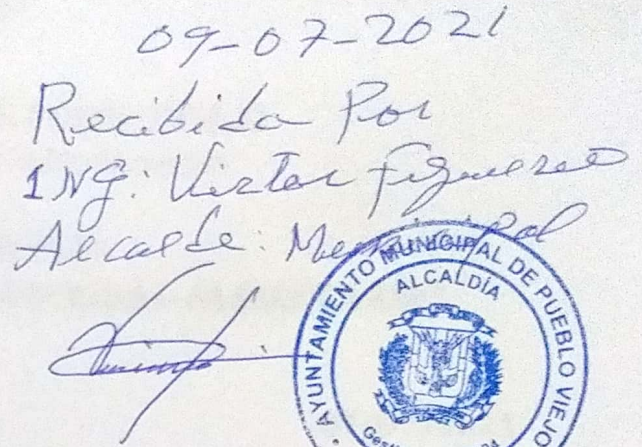 09-07-2021
Recibida Por
ING: Victor Figuereo
Alcalde: Municipal
AYUNTAMIENTO MUNICIPAL DE PUEBLO VIEJO
ALCALDÍA